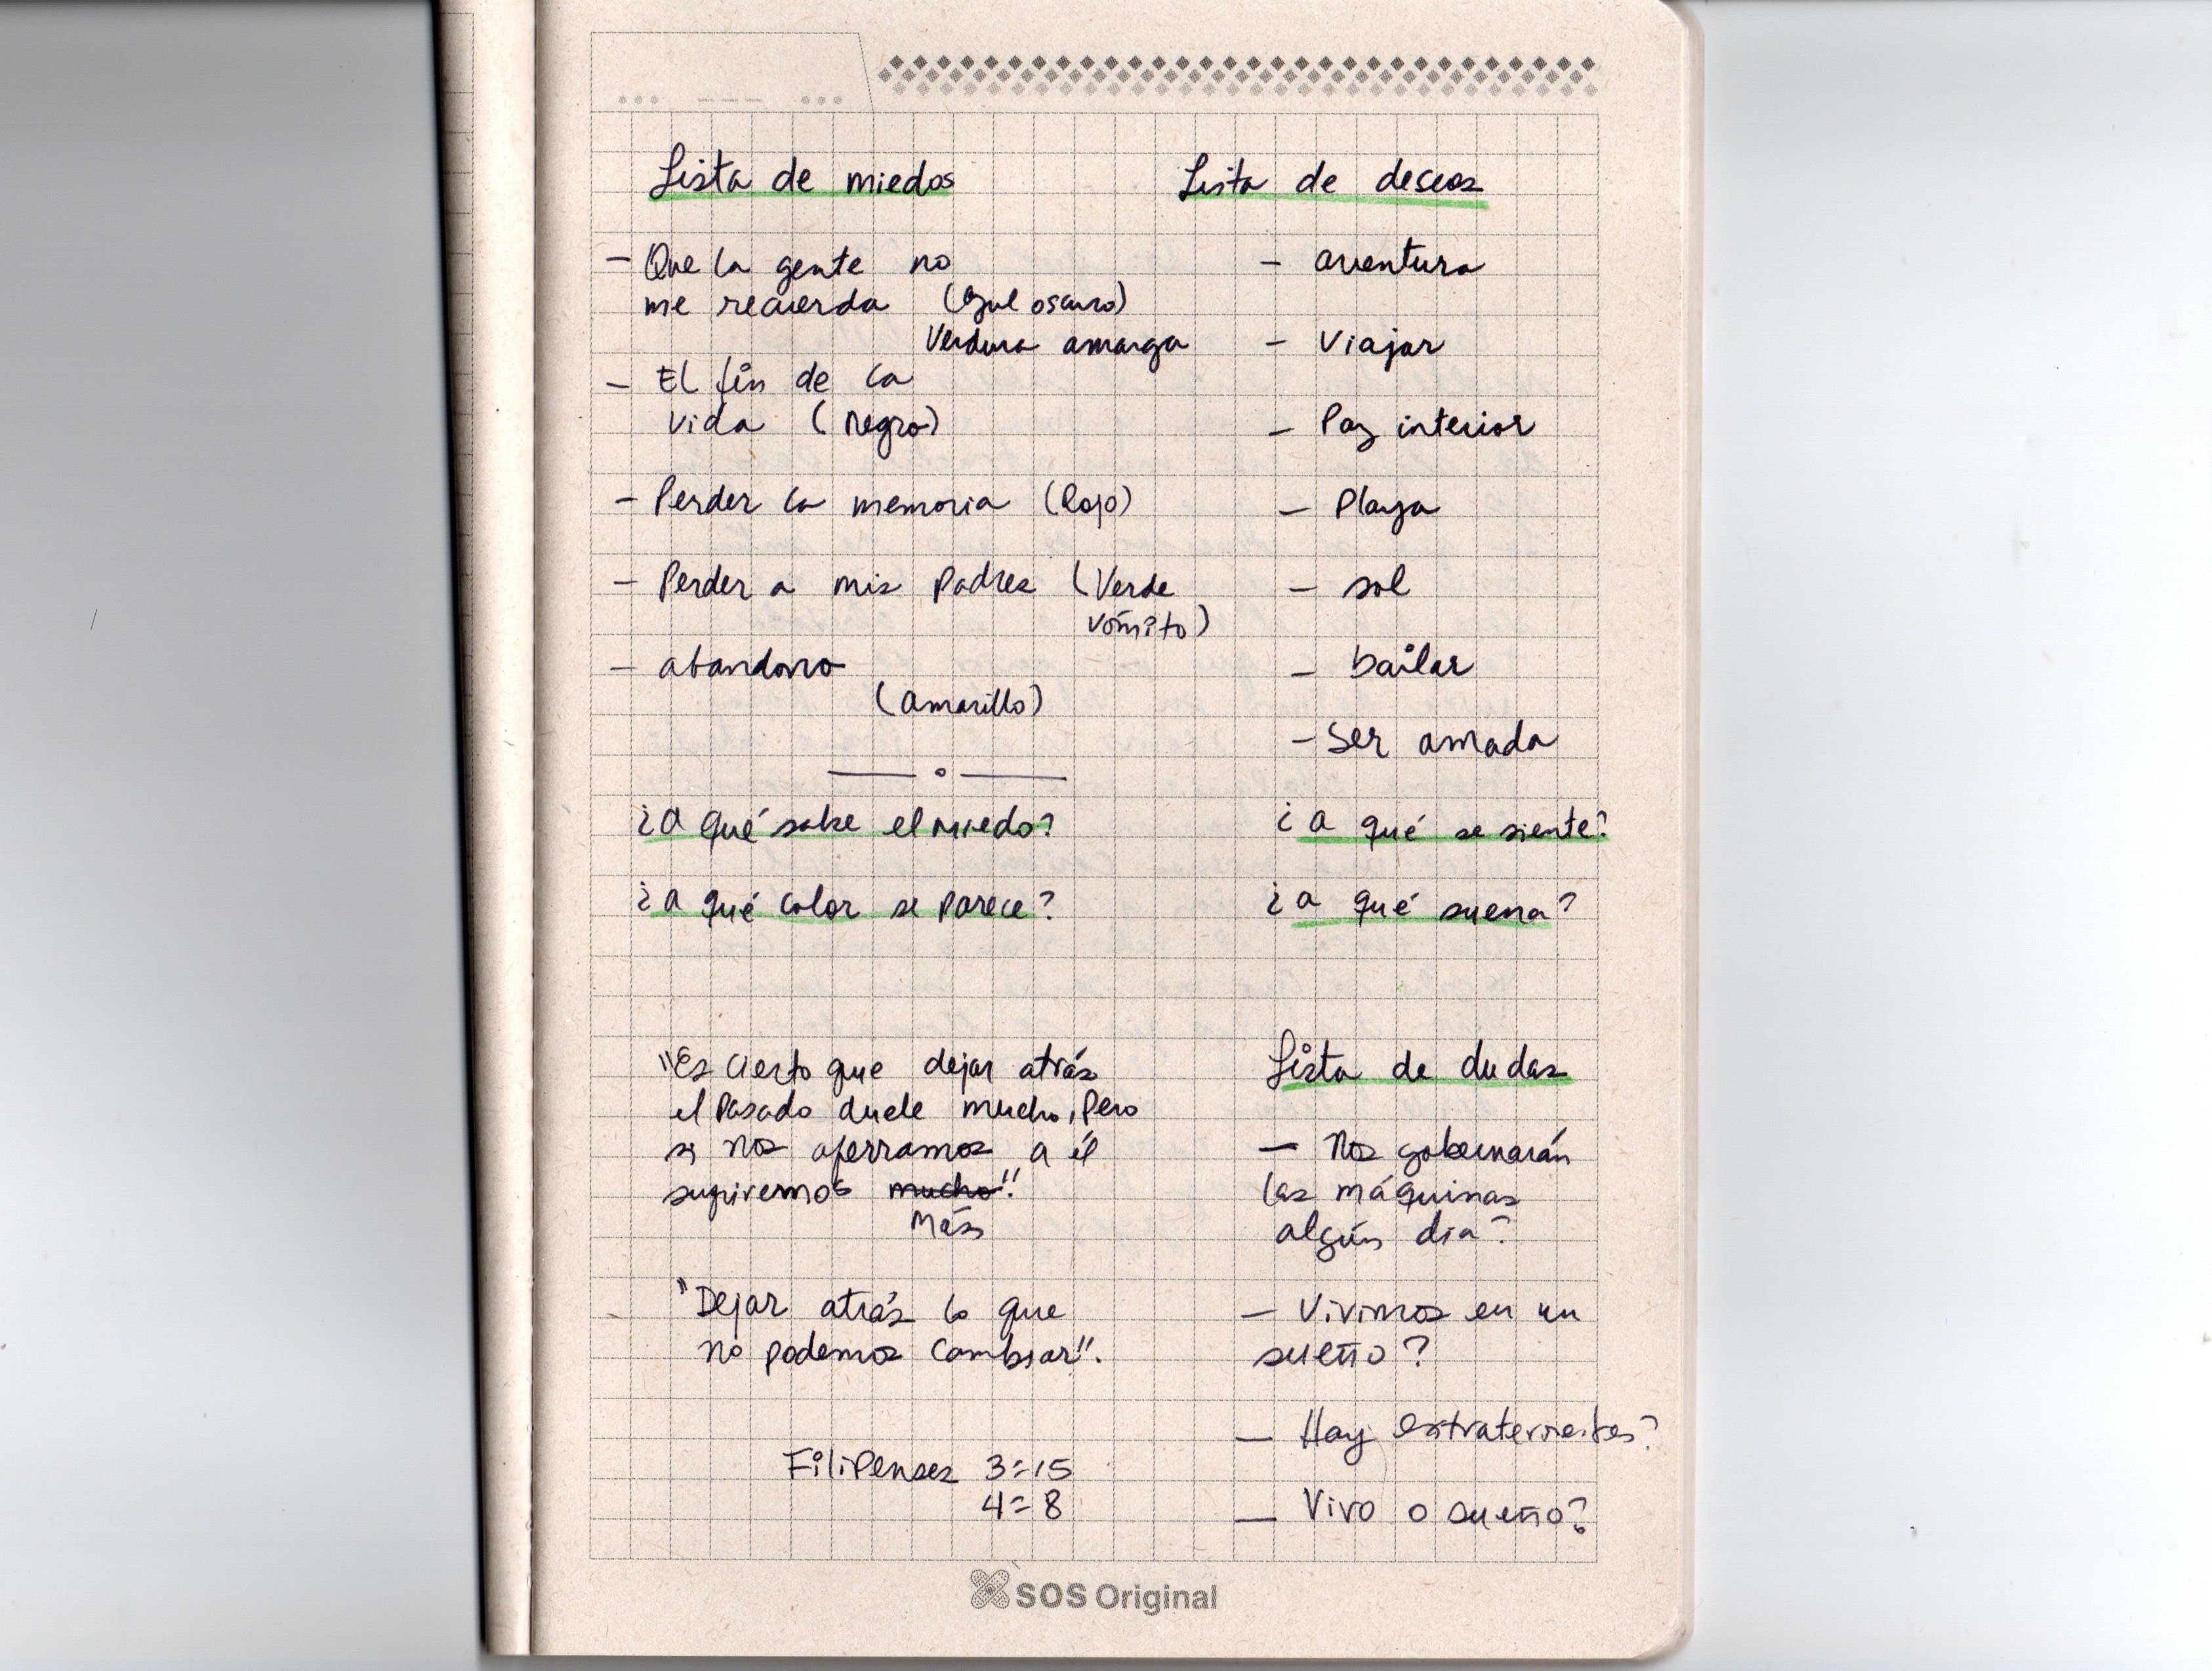 Lista de miedos
- Que la gente no
me recuerda (Azul oscuro)
Verdura amarga
- El fin de la
vida (negro)
- Perder la memoria (Rojo)
- Perder a mis padres (Verde
vómito)
- abandono
(Amarillo)
¿A qué sabe el miedo?
¿A qué color se parece?
Lista de deseos
- aventura
- Viajar
- Paz interior
- Playa
- sol
- bailar
- Ser amada
¿A qué se siente?
¿A qué suena?
"Es cierto que dejar atrás
el pasado duele mucho, pero
si nos aferramos a él
sufriremos mucho".
Más
"Dejar atrás lo que
no podemos cambiar".
Filipenses 3:15
4:8
Lista de dudas
- Nos gobernarán
las máquinas
algún día?
- Vivimos en un
sueño?
- Hay extraterrestres?
- Vivo o sueño?
SOS Original